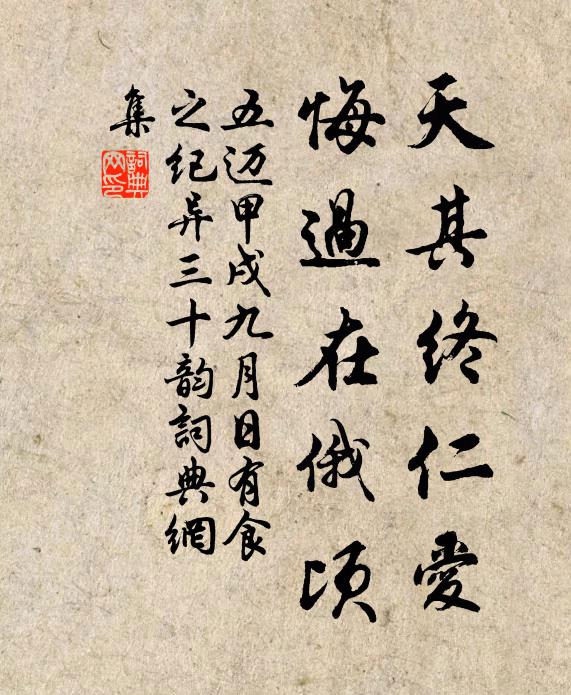 天其终仁愛
悔過在俄頃
五迈甲戌九月日有食
之纪异三十韵詞典網
集
詞典
网印